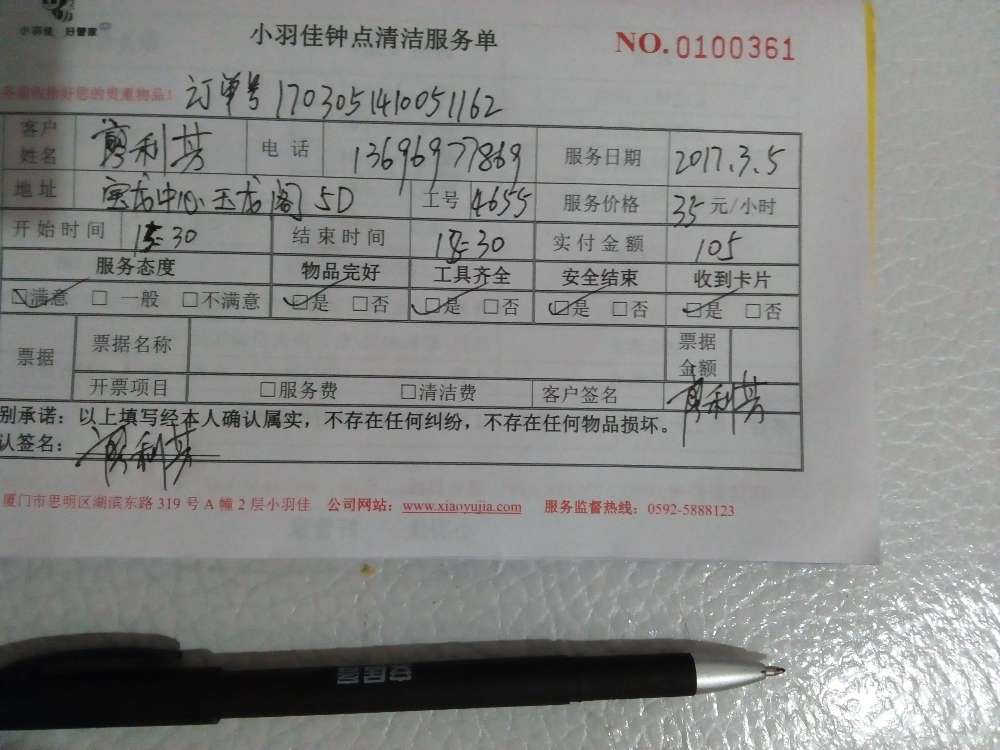 小羽佳 好管家
小羽佳钟点清洁服务单
NO. 0100361
您的贵重物品！ 订单号 1703051410051162
客户姓名 利芬 电话 13696977869 服务日期 2017.3.5
地址 宝龙中心玉龙阁 5D 工号 4655 服务价格 35 元/小时
开始时间 15:30 结束时间 18:30 实付金额 105
服务态度 物品完好 工具齐全 安全结束 收到卡片
☑满意 □一般 □不满意 ☑是 □否 ☑是 □否 ☑是 □否 ☑是 □否
票据 票据名称 票据金额
开票项目 □服务费 □清洁费 客户签名 利芬
别承诺：以上填写经本人确认属实，不存在任何纠纷，不存在任何物品损坏。
认签名： 利芬
厦门市思明区湖滨东路 319 号 A 幢 2 层小羽佳 公司网站：www.xiaoyujia.com 服务监督热线：0592-5888123
安居客